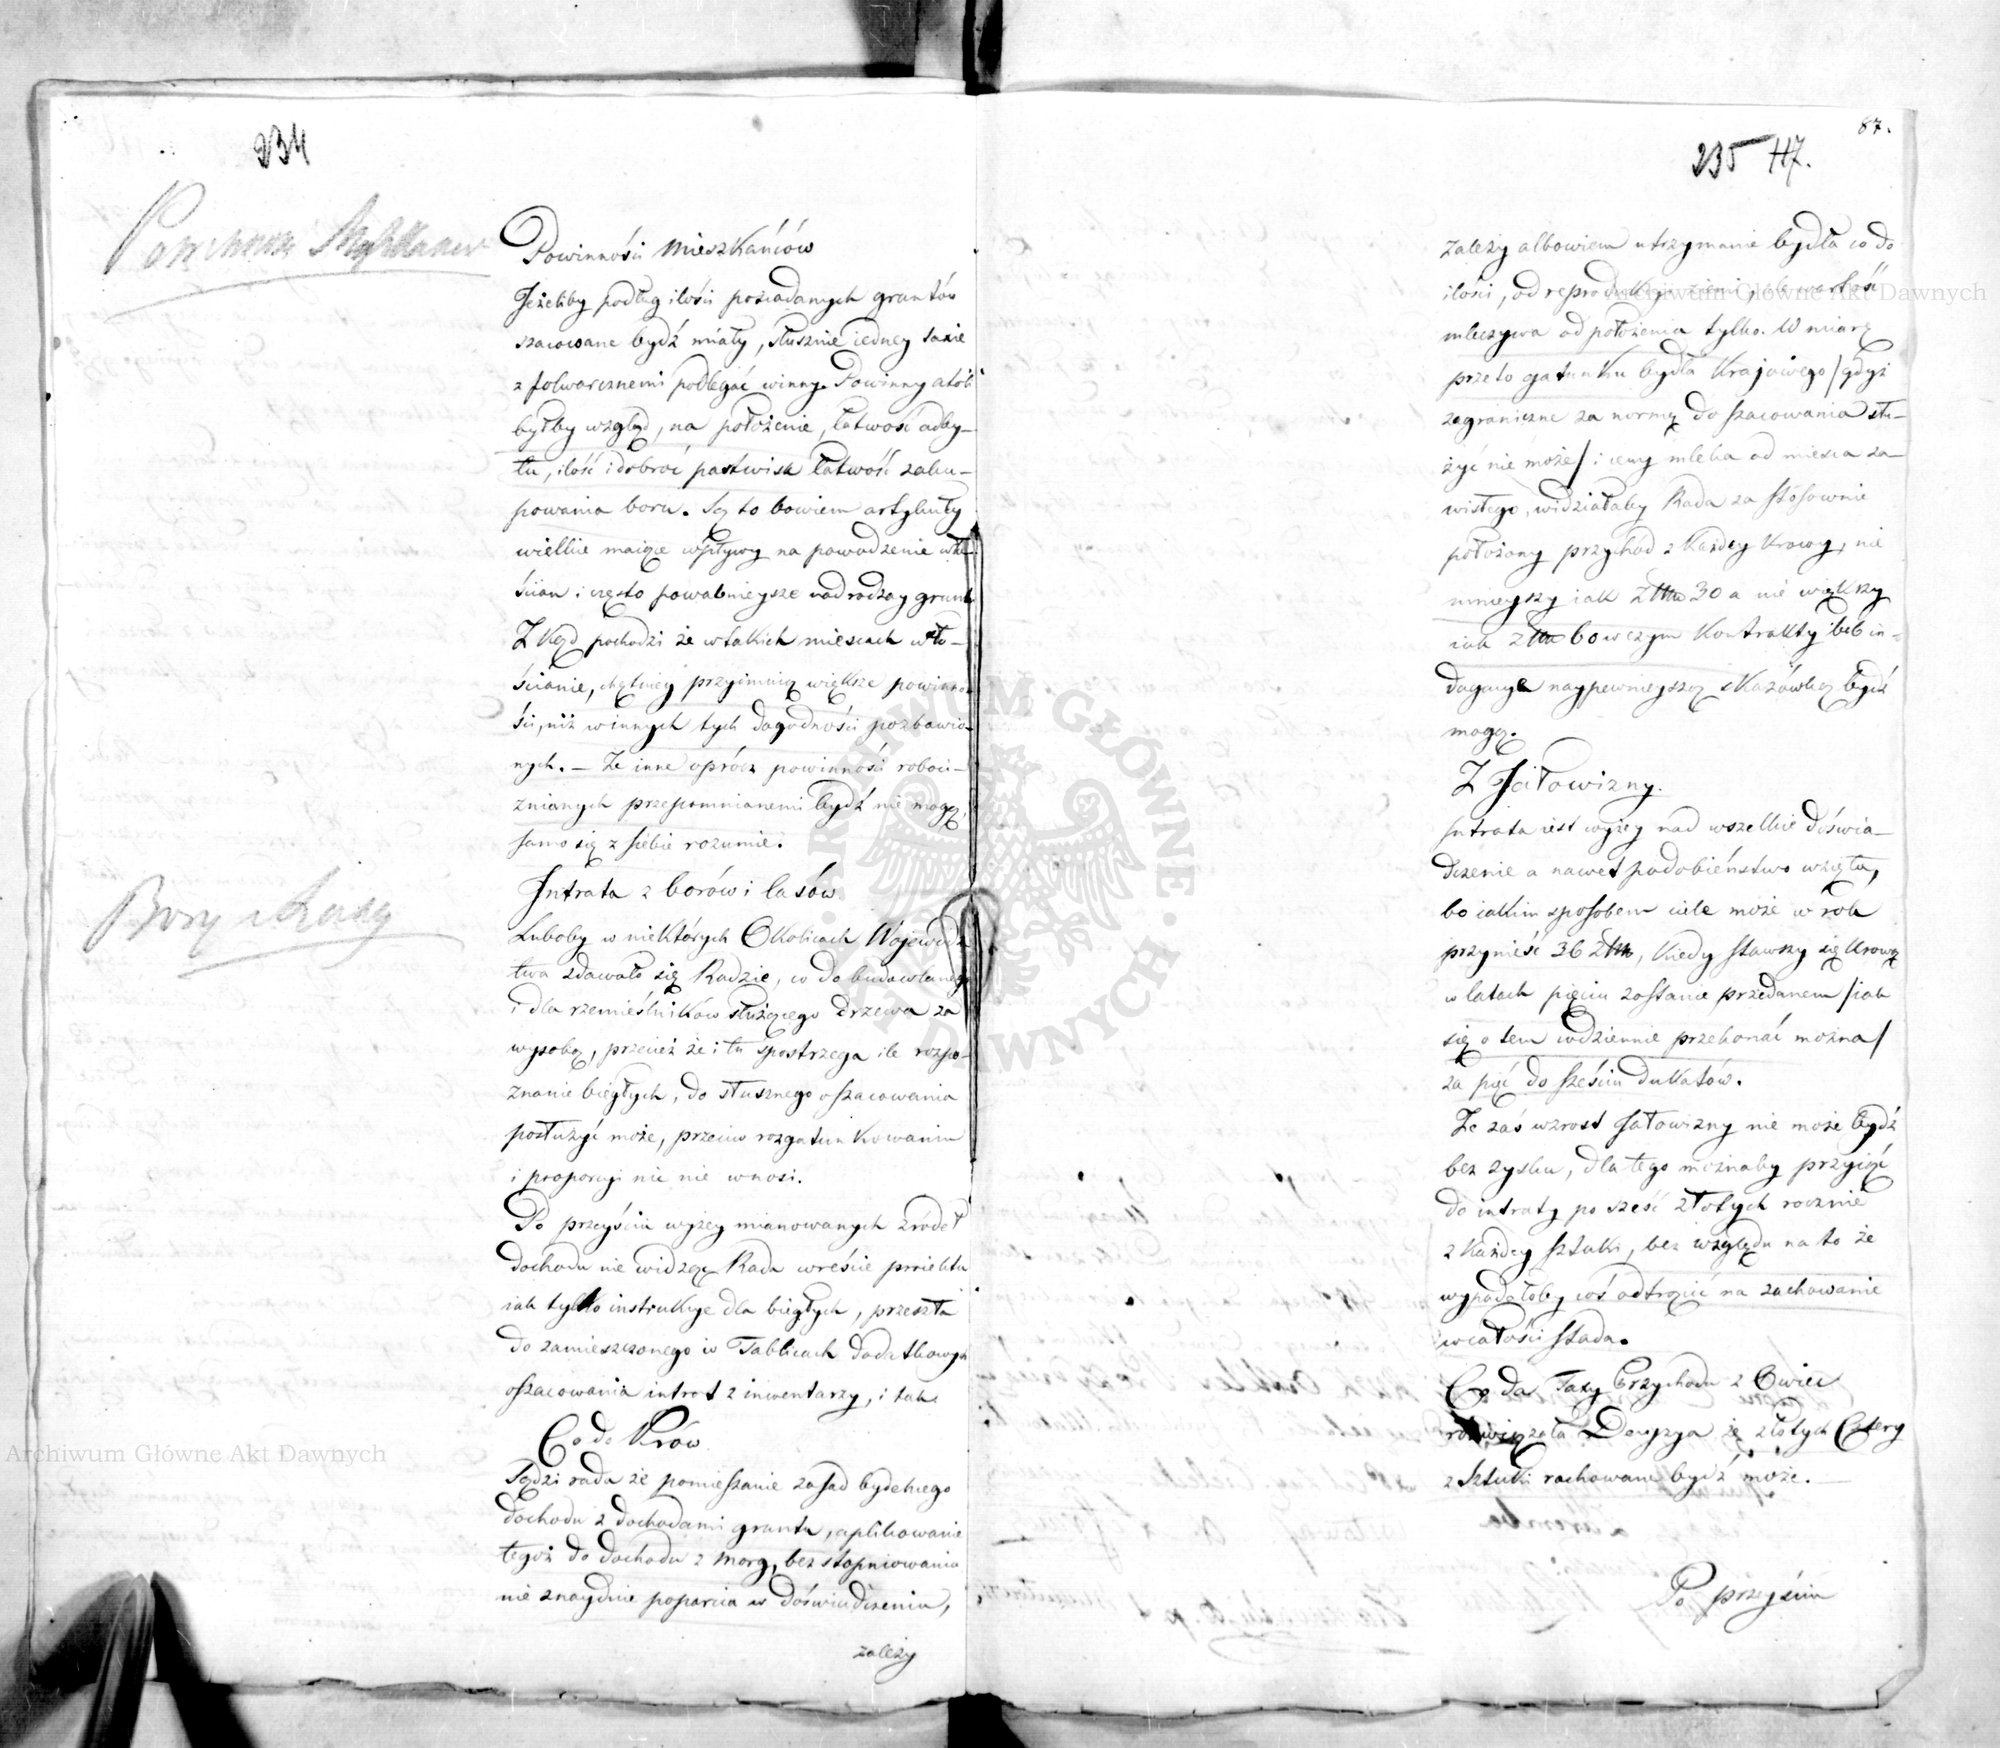 234
Powinności Mieszkańców
Powinności Mieszkańców
Jeżeliby podług ilości posiadanych gruntów
szacowane bydź miały, słusznie iedney taxie
z folwarcznemi podlegać winny. Powinny a toli
byłby wzgląd, na położenie, łatwość odby-
tu, ilość i dobroć pastwisk łatwość zaku-
powania boru. Są to bowiem artybuty
wielkie maiące wpływy na powodzenie wło-
ścian i często powabnieysze nad rodzay gruntu
Z kąd pochodzi że w takich miescach wło-
ścianie, chętniey przyimuią większe powinno-
ści, niż w innych tych dogodności pozbawio-
nych. – Że inne oprócz powinności roboci-
znianych przepomnianemi bydź nie mogą
samo się z siebie rozumie.
Bory i Lasy
Intrata z borów i lasów
Luboby w niektórych Okolicach Wojewódz
twa zdawało się Radzie, co do budowlanego
i dla rzemieślników służącego drzewa za
wysoką, przecież że i tu spostrzega ile rozpo-
znanie biegłych, do słusznego oszacowania
posłużyć może, przeciw rozgatunkowaniu
i proporcyi nic nie wnosi.
Po przeyściu wyżey mianowanych źródeł
dochodu nie widząc Rada wreście proiektu
iak tylko instrukcye dla biegłych, przeszła
do zamieszczonego w Tablicach dodatkowych
oszacowania intrat z inwentarzy, i tak
Co do Krów
Sądzi rada że pomieszanie zasad bydelnego
dochodu z dochodami gruntu, aplikowanie
tegoż do dochodu z morg, bez stopniowania
nie znayduie poparcia w doświadczeniu,
zależy
87.
235 117.
zależy albowiem utrzymanie bydła co do
ilości, od reprodukcyi ziemi, a wartość
mleczywa od położenia tylko. W miarę
przeto gatunku bydła Krajowego /gdyż
zagraniczne za normę do szacowania słu-
żyć nie może/ i ceny mleka od miesca za-
wisłego, widziałaby Rada za stósownie
położony przychód z każdey krowy, nie
mnieyszy iak Złłł 30 a nie większy
iak złłł 60 w czym Kontrakty lub in-
dagacye naypewnieyszą skazówką bydź
mogą.
Z Jałowizny.
Intrata iest wyżey nad wszelkie doświa-
dczenie a nawet podobieństwo wzięta,
bo iakim sposobem ciele może w rok
przynieść 36 złłł, kiedy stawszy się krową
w latach pięciu zostanie przedanem /iak
się o tem codziennie przekonać można/
za pięć do sześciu dukatów.
Że zaś wzrost jałowizny nie może bydź
bez zysku, dla tego możnaby przyiąć
do intraty po sześć złotych rocznie
z każdey sztuki, bez względu na to że
wypadałoby coś odtrącić na zachowanie
w całości stada.
Co do Taxy Przychodu z Owiec
rozwiązała Decyzya że złotych Cztery
z sztuki rachowane bydź może. —
Po przeyściu
Archiwum Główne Akt Dawnych
Archiwum Główne Akt Dawnych
ARCHIWUM GŁÓWNE AKT DAWNYCH